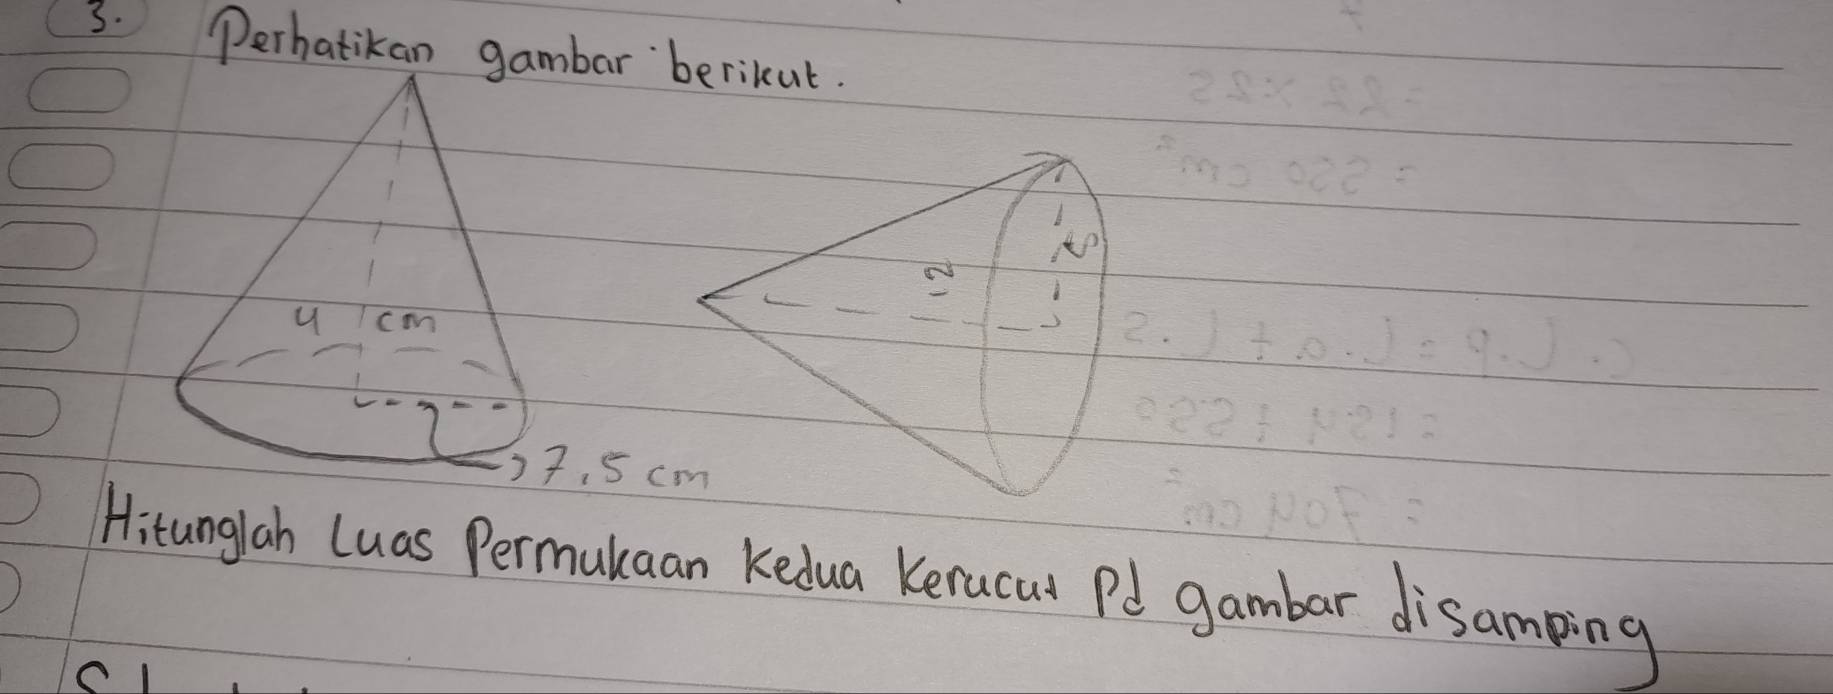 3. Perhatikan gambar berikut.
4 cm
12
5
7,5 cm
Hitunglah Luas Permukaan Kedua Kerucut Pd gambar disamping